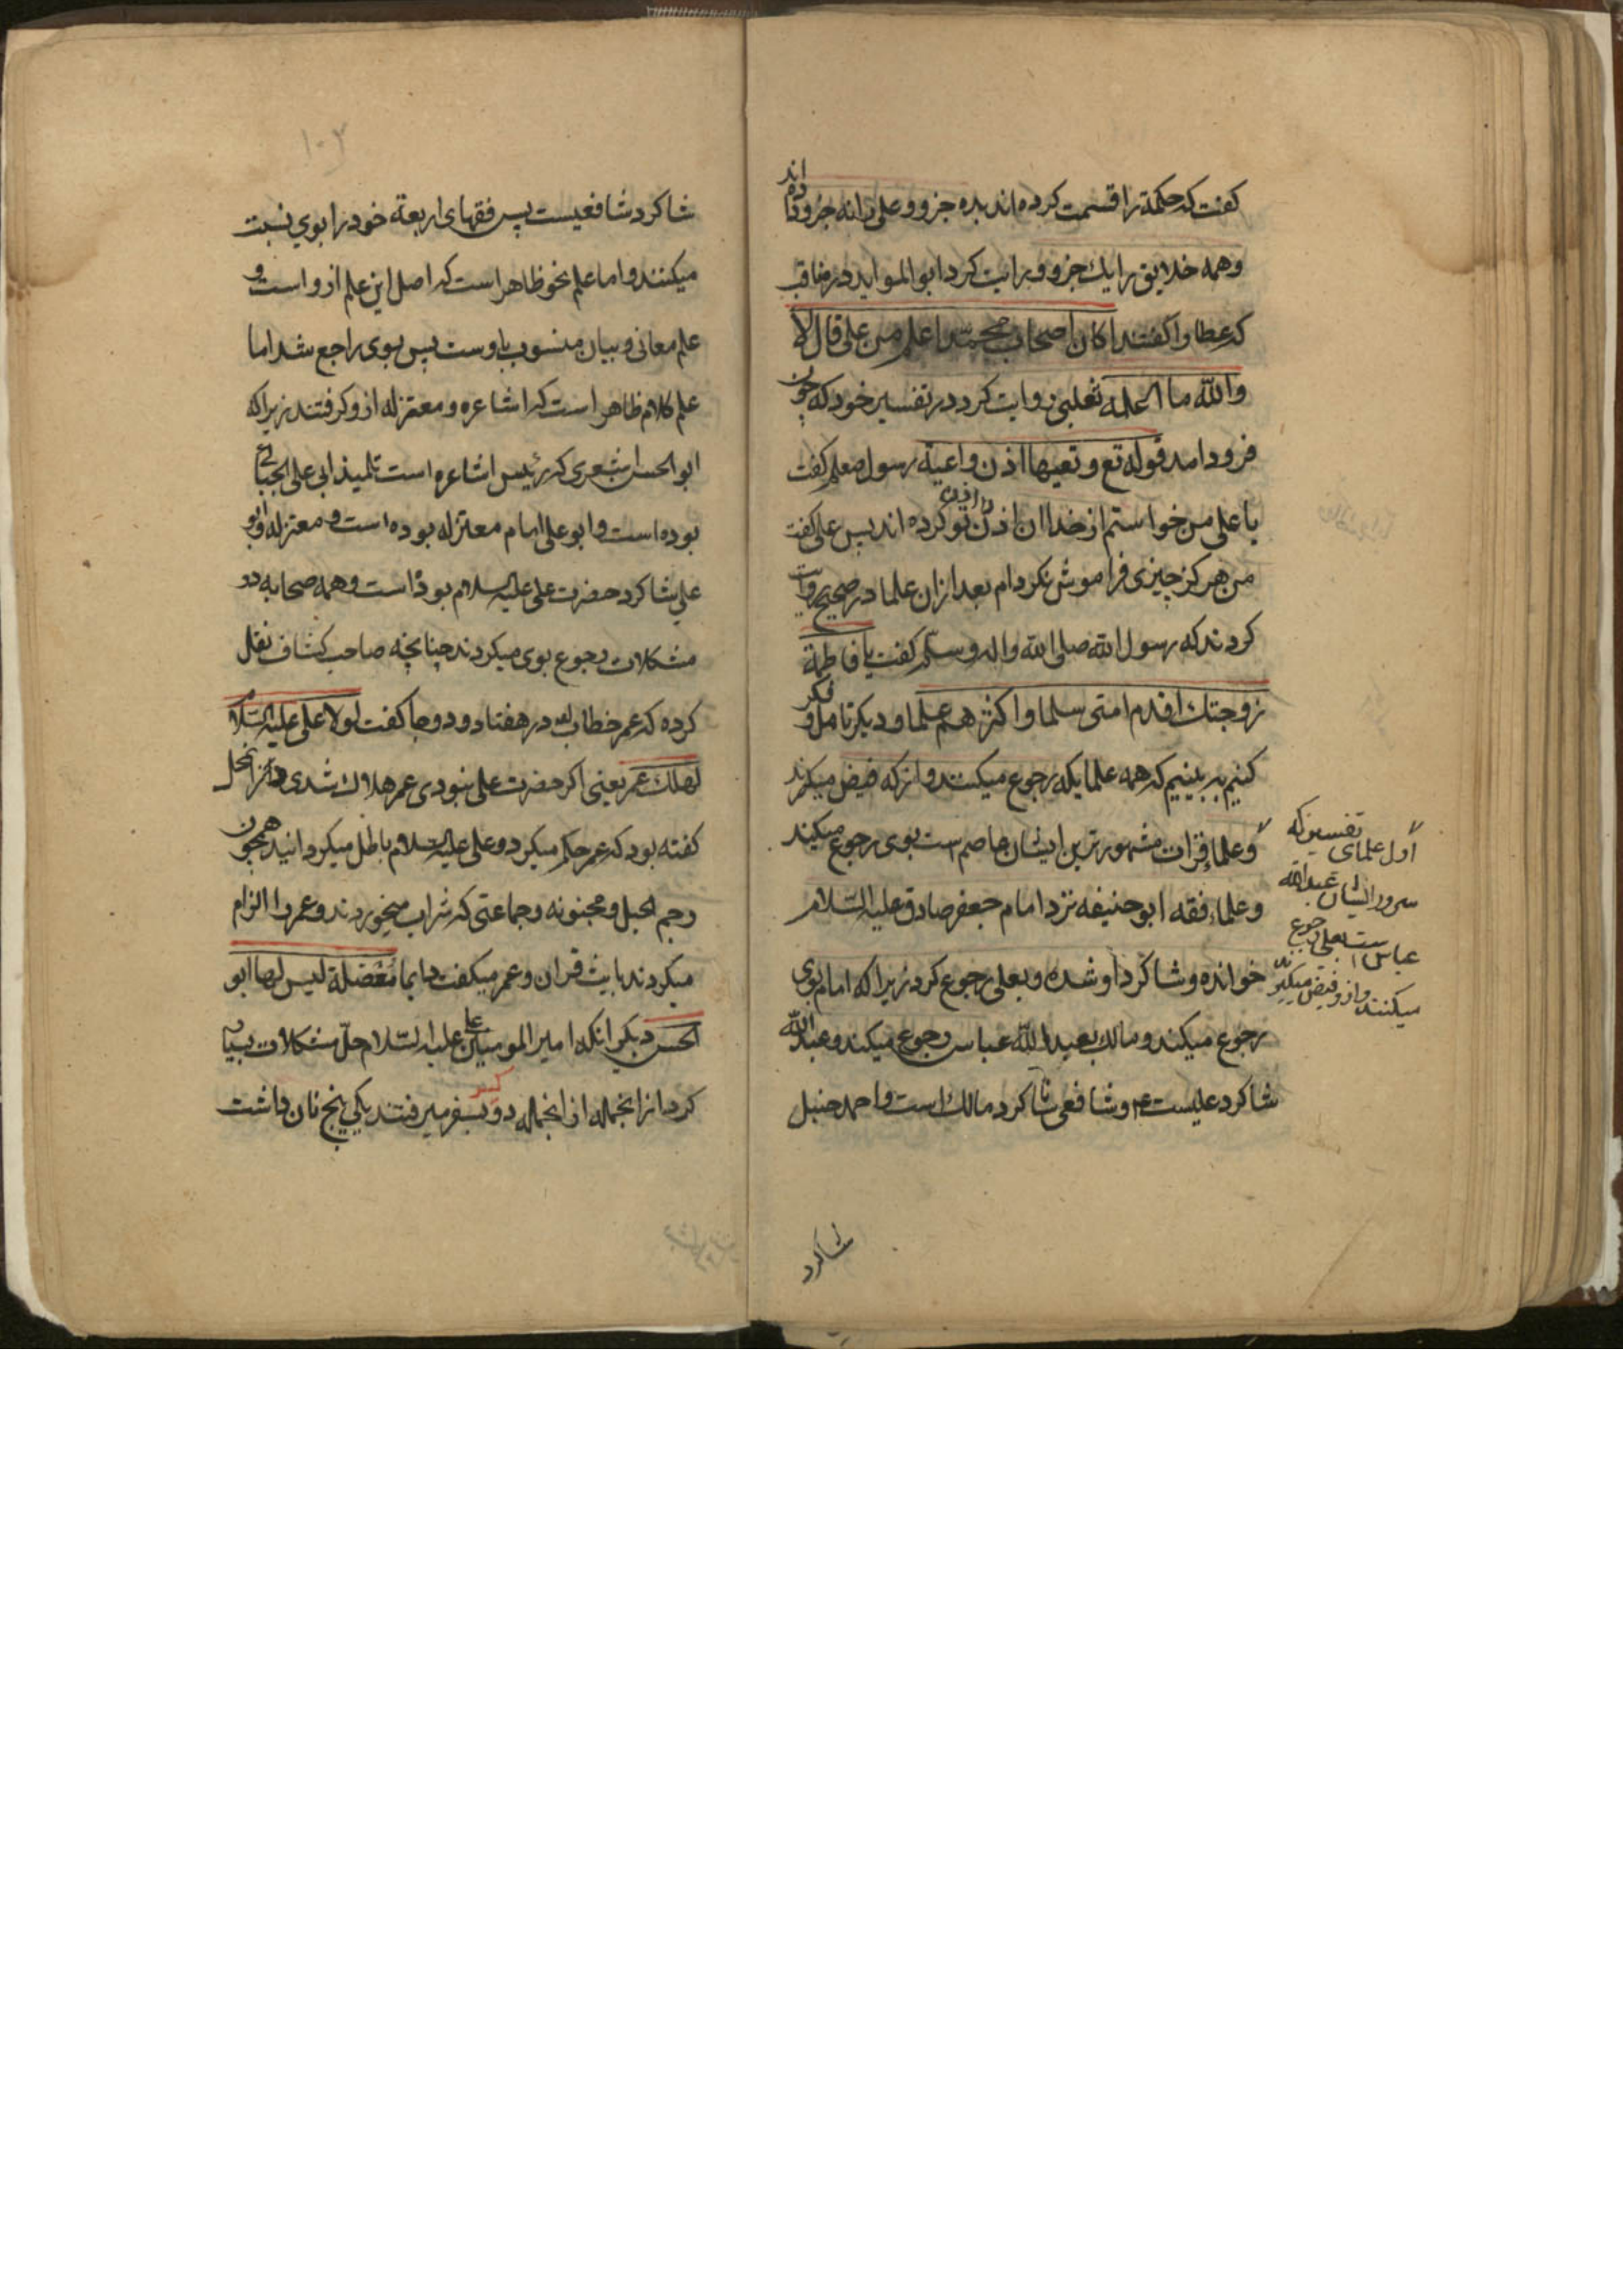 کفت که حکمة را قسمت کرده اند بده جزو و علی را نه جزو داده اند
و همه خلایق را یك جزو و روایت کرد ابو الموید در مناقب
که عطا را کفتند اکان اصحاب محمد اعلم من علی قال لا
والله ما اعلمه ثعلبی روایت کرد در تفسیر خود که چون
فرود امد قوله تع و تعیها اذن واعیة رسول صعلم کفت
یا علی من خواستم از خدا ان اذن را اذن تو کرده اند پس علی کفت
من هرکز چیزی فراموش نکردام بعد ازان علما در صحیح روایت
کردند که رسول الله صلی الله واله وسلم کفت یا فاطمة
زوجتك اقدم امتی سلما و اکثرهم علما و دیکر تامل و فکر
کنیم به بینیم که همه علما بکه رجوع میکنند و از که فیض میکرند
و علماء قرات مشهورترین ایشان عاصم است بوی رجوع میکند
و علماء فقه ابو حنیفه نزد امام جعفر صادق علیه السلام
خوانده و شاکرد او شده و بعلی رجوع کرد زیرا که امام بوی
رجوع میکند و مالك بعبد الله عباس رجوع میکند و عبد الله
شاکرد علیست ع و شافعی شاکرد مالك است و احمد حنبل
اول علمای تفسیر که
سرور ایشان عبد الله
عباس است بعلی رجوع
میکنند و از و فیض میکیرند
شاکرد
۱۰۳
شاکرد شافعیست پس فقهای اربعة خود را بوی نسبت
میکنند و اما علم نحو ظاهر است که اصل این علم از و است و
علم معانی و بیان منسوب باوست پس بوی راجع شد اما
علم کلام ظاهر است که اشاعره و معتزله از و کرفتند زیرا که
ابو الحسن اشعری که رئیس اشاعره است تلمیذ ابی علی الجبائی
بوده است و ابو علی امام معتزله بوده است و معتزله و ابو
علی شاکرد حضرت علی علیه السلام بوداست و همه صحابه در
مشکلات رجوع بوی میکردند چنانچه صاحب کشاف نقل
کرده که عمر خطاب در هفتاد و دو جا کفت لولا علی علیه السلام
لهلك عمر یعنی اکر حضرت علی نبودی عمر هلاك شدی
کفته بود که عمر حکم میکرد و علی علیه السلام باطل میکردانید همچون
رجم الحبل و مجنونه و جماعتی که شراب میخوردند و عمر را الزام
میکردند بایت قران و عمر میکفت دایما معضلة لیس لها ابو
الحسن دیکر انکه امیر المومنین علی علیه السلام حل مشکلات بسیار
کرد از انجمله از انجمله دو کس بسفر میرفتند یکی پنج نان داشت